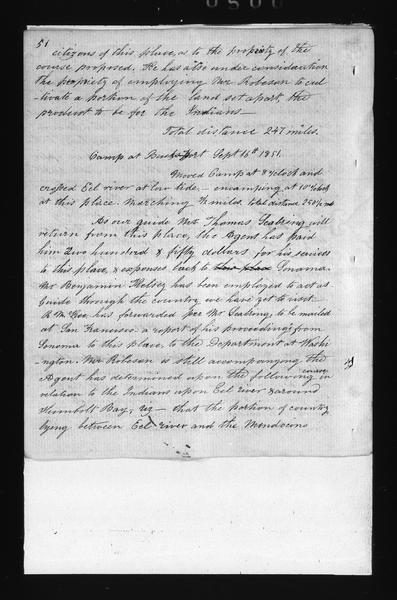 51
citizens of this place, as to the propriety of the
course proposed. He has also under consideration
the propriety of employing Mr Robeson to cul
-tivate a portion of the land set apart, the
product to be for the Indians—
Total distance 247 miles.
Camp at Bucksport Sept 16th 1851.
Moved Camp at 8 o'clock and
crossed Eel river at low tide, – encamping at 10 o'clock
at this place. Marching 3½ miles. Total distance 250½ miles
As our guide Mr Thomas Seabring will
return from this place, the Agent has paid
him Two hundred & fifty dollars for his services
to this place, & expenses back to Sonoma.
Mr Benjamin Kelsey has been employed to act as
Guide through the country we have yet to visit.
R. McKee has forwarded per Mr Seabring, to be mailed
at San Francisco a report of his proceedings from
Sonoma to this place, to the Department at Washi-
-ngton. Mr Robeson is still accompanying the
Agent has determined upon the following course in
relation to the Indians upon Eel river & around
Humbolt Bay, viz – that the portion of country
lying between Eel river and the Mendocino